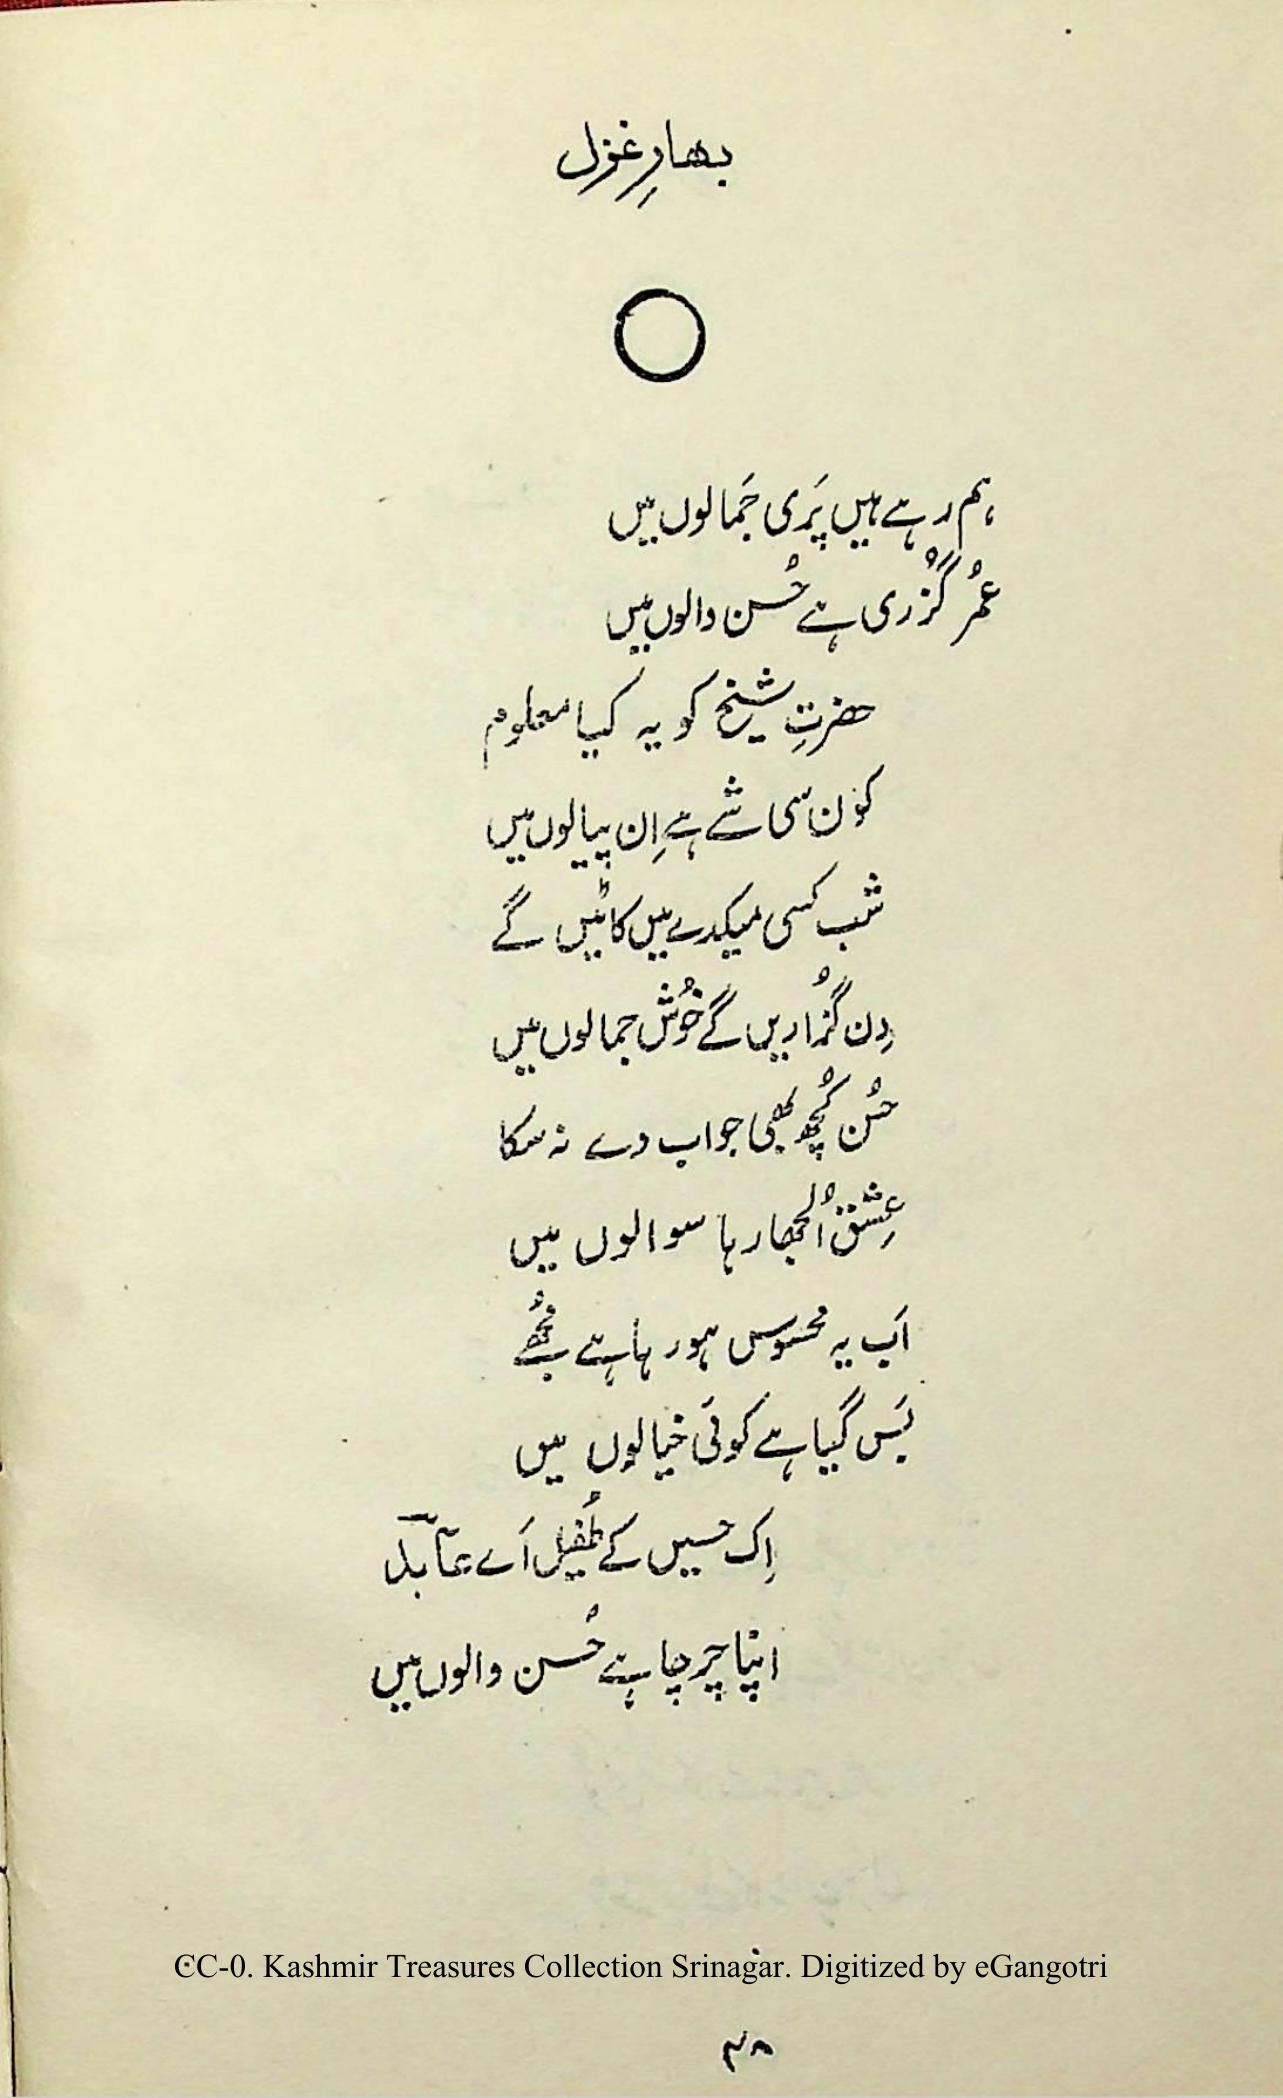 بھارِ غزل
ہم رہے ہیں پَری جَمالوں میں
عمُر گُزری ہے حُسن والوں میں
حضرتِ شیخ کو یہ کیا معلوم
کون سی شے ہے اِن پیالوں میں
شب کسی میکدے میں کاٹیں گے
دِن گُزاریں گے خُوش جمالوں میں
حُسن کُچھ بھی جواب دے نہ سکا
عِشق اُلجھا رہا سوالوں میں
اَب یہ محسوس ہو رہا ہے مُجھے
بَس گیا ہے کوئی خیالوں میں
اِک حسیں کے طُفیل اَے عابدؔ
اپنا چرچا ہے حُسن والوں میں
CC-0. Kashmir Treasures Collection Srinagar. Digitized by eGangotri
۴۸